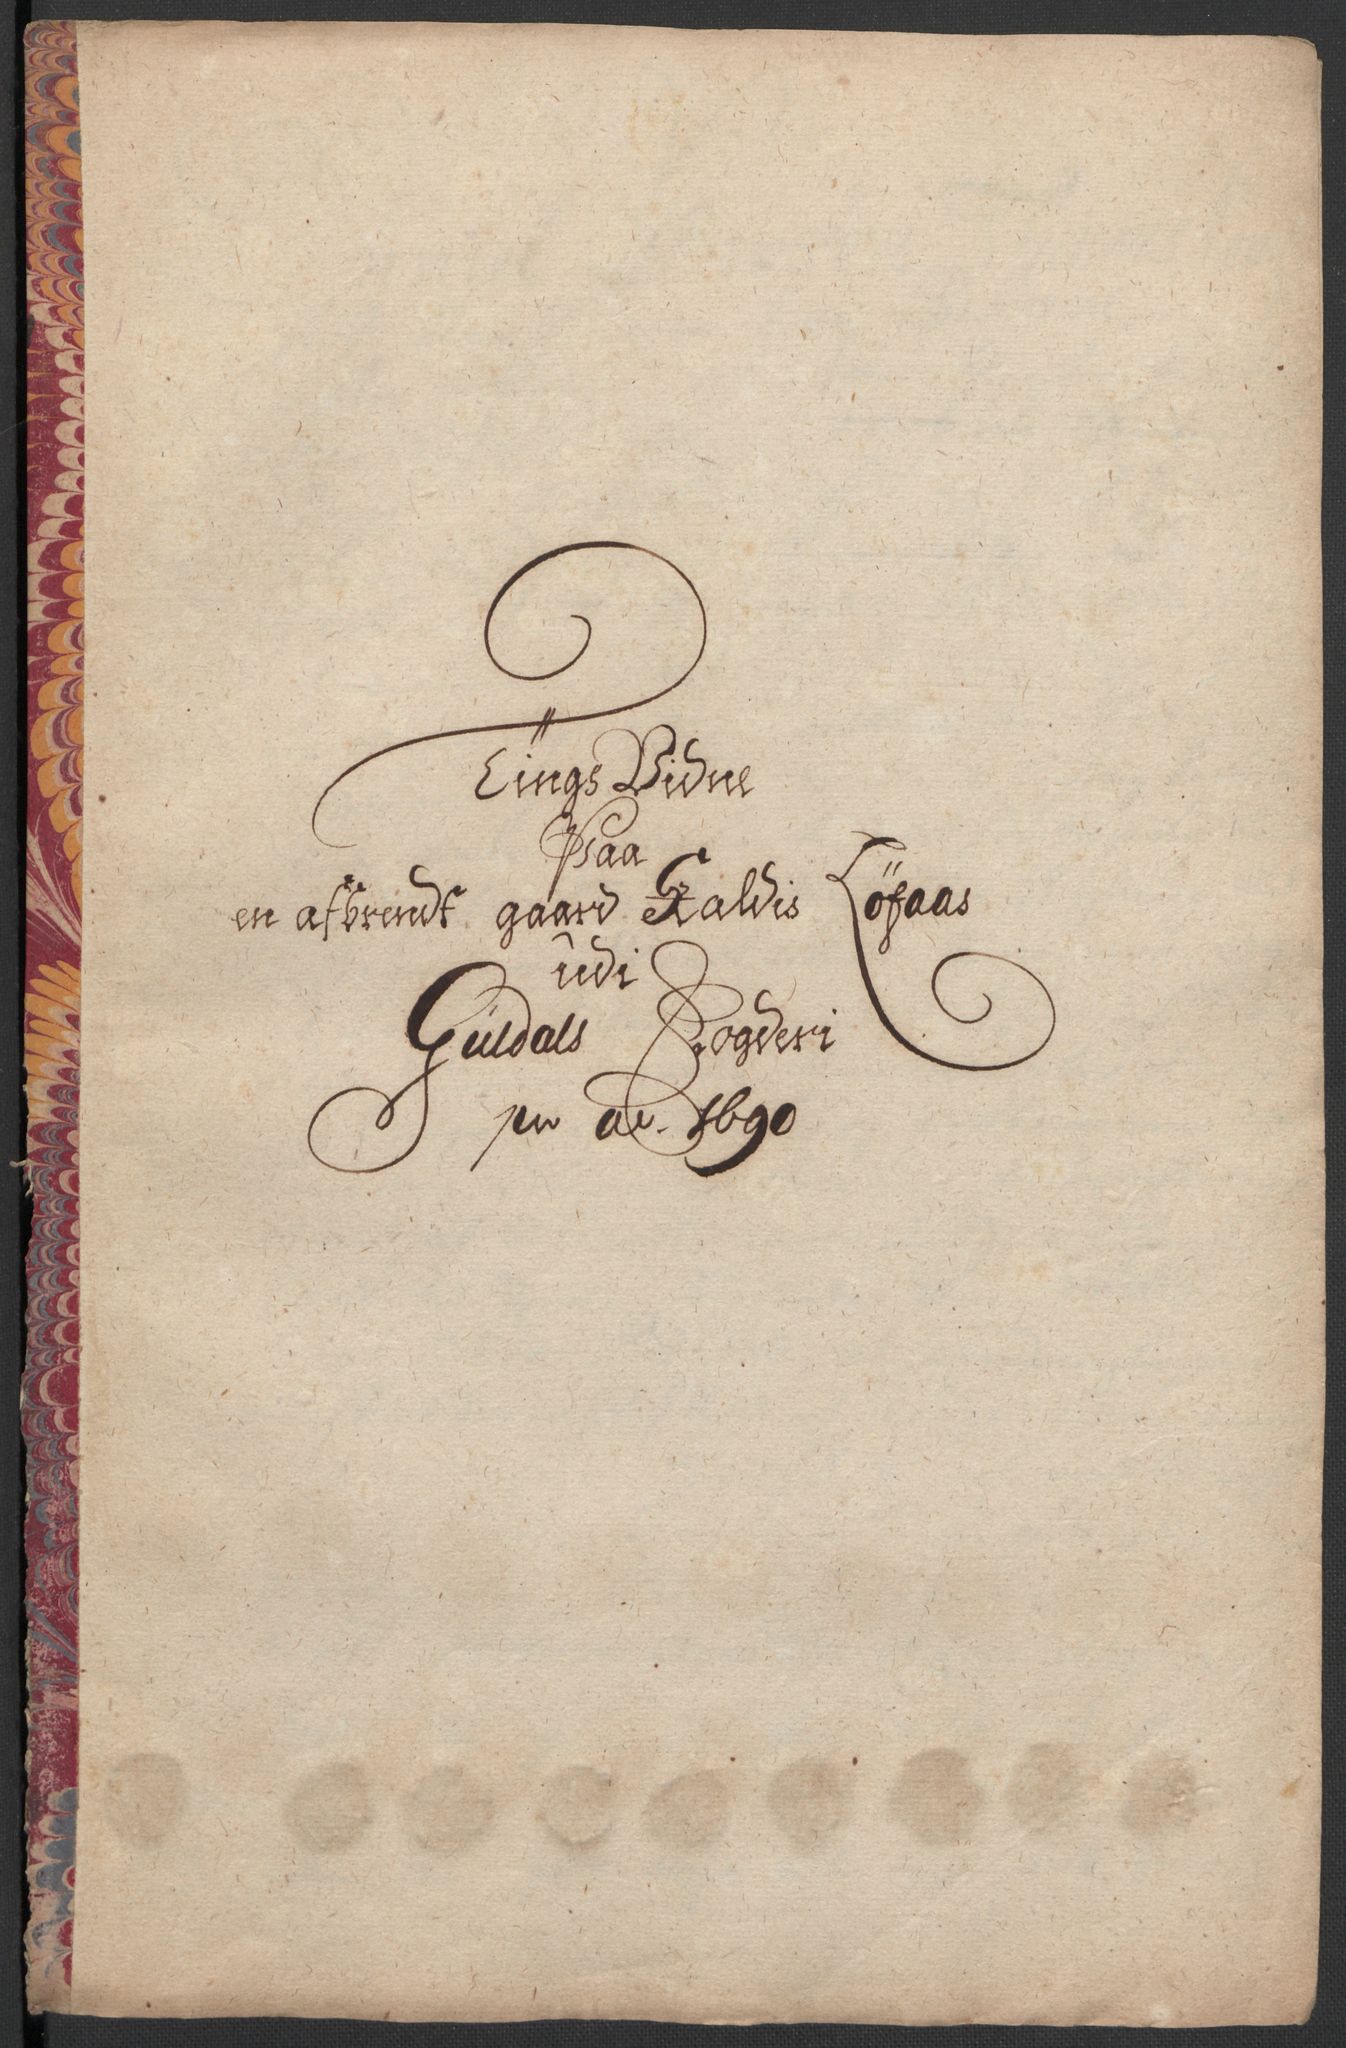 Tings Vidne
Paa
en afbrendt gaard Kaldis Löfaas
udi
Güldals Fogderi
pro ao. 1690